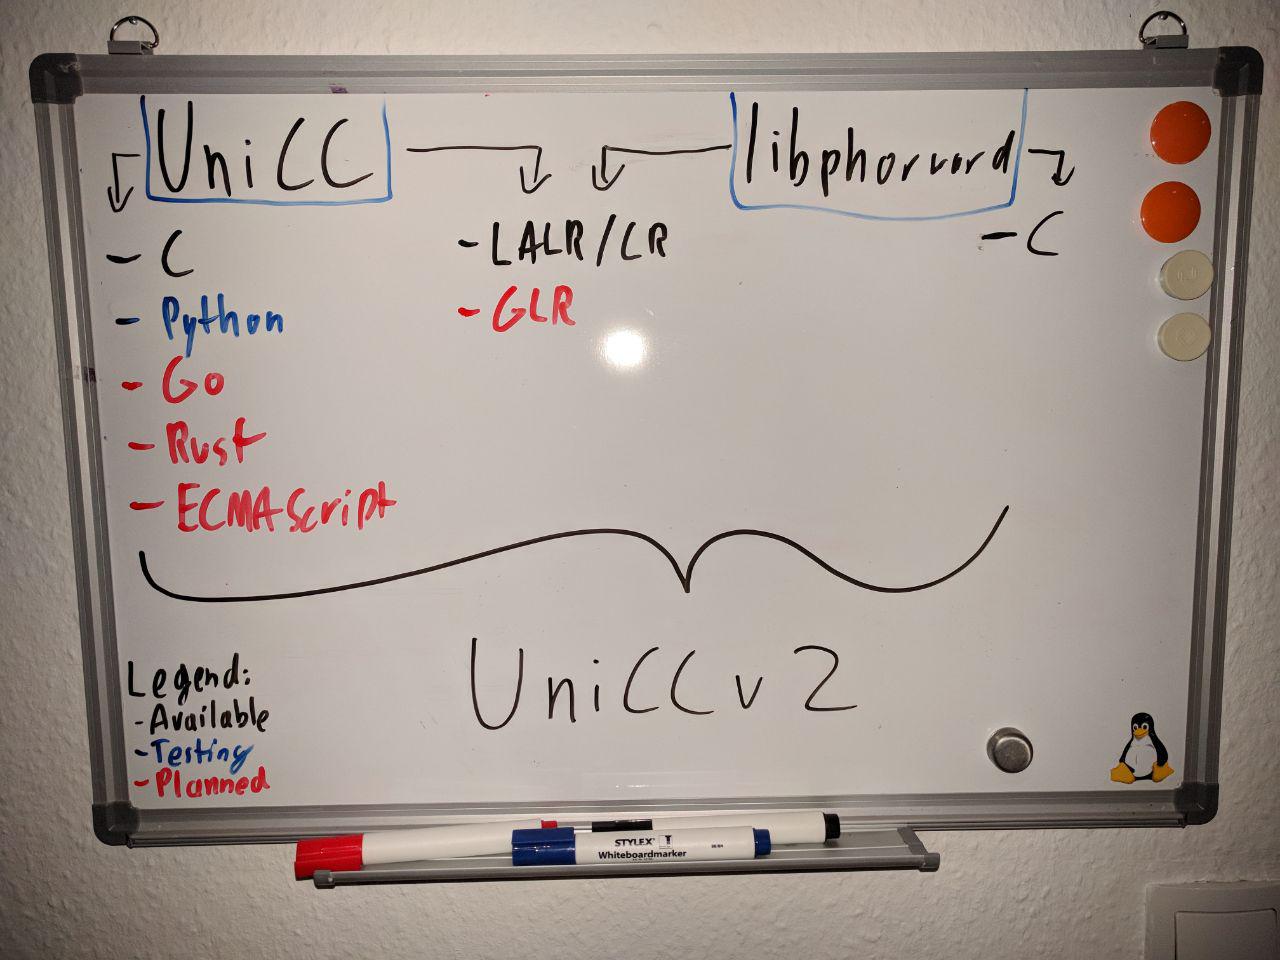 UniCC
libphorward
- C
- Python
- Go
- Rust
- ECMAScript
- LALR/LR
- GLR
- C
UniCC v2
Legend:
- Available
- Testing
- Planned
STYLEX
Whiteboardmarker